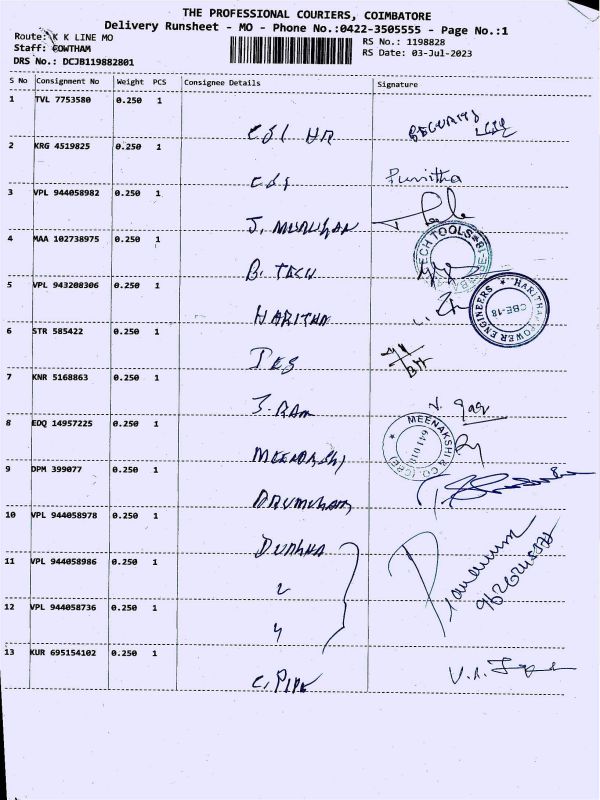 THE PROFESSIONAL COURIERS, COIMBATORE
Delivery Runsheet - MO - Phone No.:0422-3505555 - Page No.:1
Route: K K LINE MO
RS No.: 1198828
Staff: GOWTHAM
RS Date: 03-Jul-2023
DRS No.: DCJB119882801
S No Consignment No Weight PCS Consignee Details Signature
1 TVL 7753580 0.250 1
HR SECURITY
2 KRG 4519825 0.250 1
Punitha
3 VPL 944058982 0.250 1
J. MURUGAN
4 MAA 102738975 0.250 1
B. TECH
TECH TOOLS
5 VPL 943208306 0.250 1
HARITHA
HARITHA POWER ENGINEERS
CBE-18
6 STR 585422 0.250 1
7 KNR 5168863 0.250 1
J. RAM
8 EDQ 14957225 0.250 1
MEENAKSHI
MEENAKSHI & CO. (CBE)
641 018
9 DPM 399077 0.250 1
ARUMUGAM
10 VPL 944058978 0.250 1
DURGHA
11 VPL 944058986 0.250 1
12 VPL 944058736 0.250 1
13 KUR 695154102 0.250 1
C. PIPE